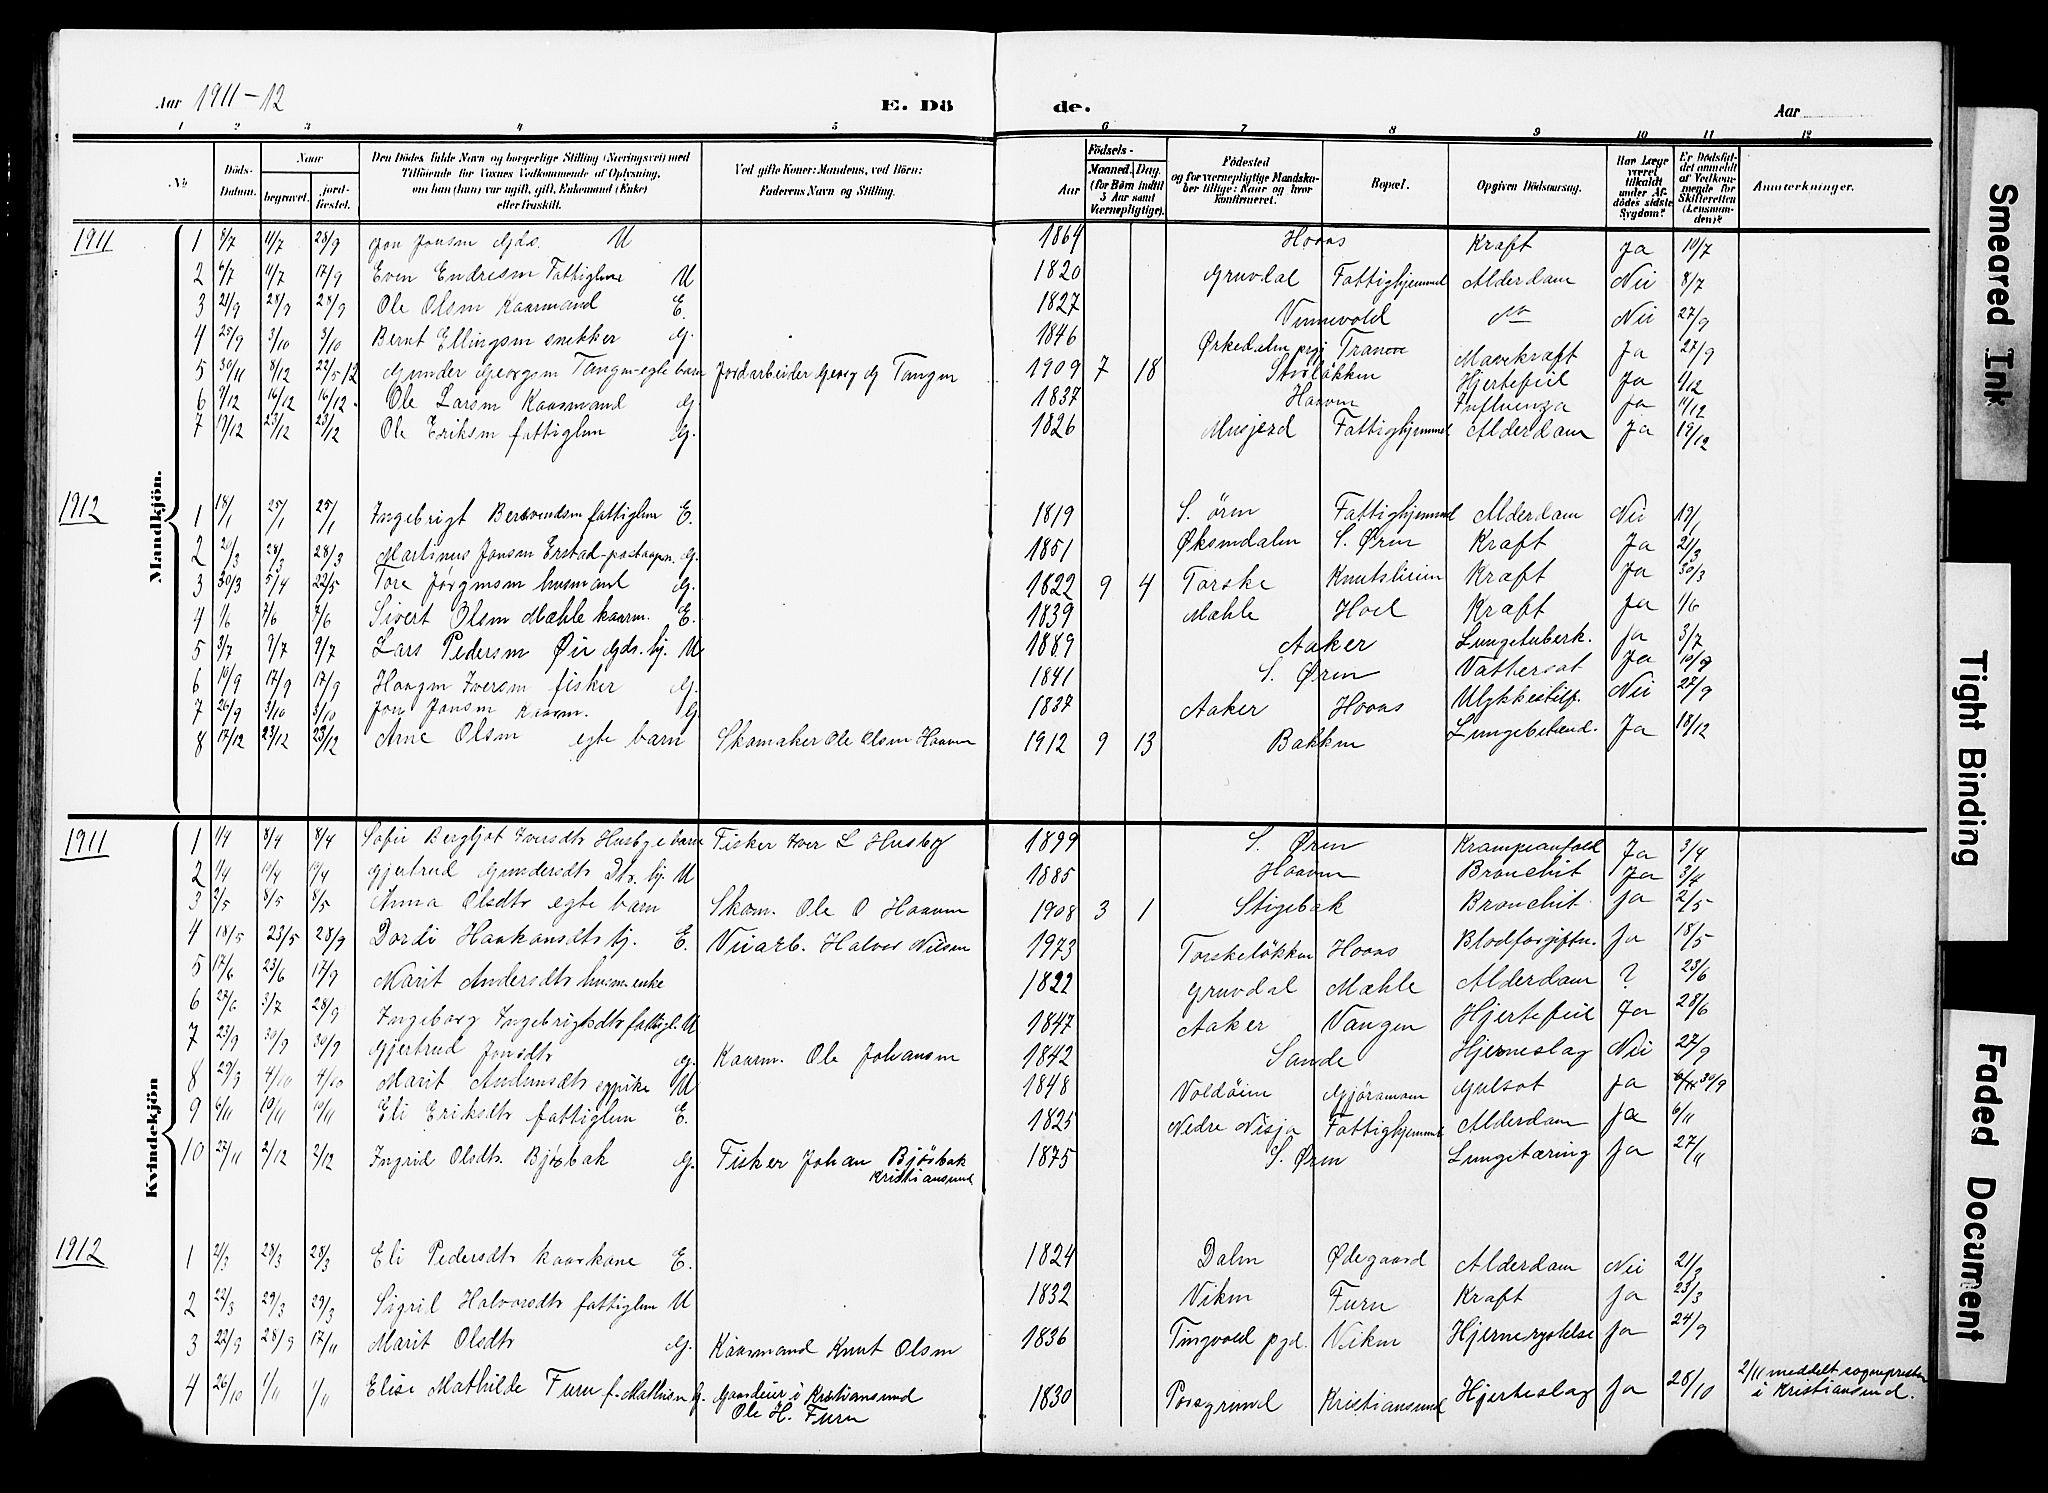 Aar 1911-12
E. Dö
de.
Aar
1 2 3 4 5 6 7 8 9 10 11 12
No
Döds-Datum.
Naar
begravet.
jordfæstet.
Den Dödes fulde Navn og borgerlige Stilling (Næringsvei) med Tilföiende for Voxnes Vedkommende af Oplysning, om han (hun) var ugift, gift, Enkemand (Enke) eller fraskilt.
Ved gifte Koner: Mandens, ved Börn: Faderens Navn og Stilling.
Födsels-
Aar
Maaned. Dag.
(for Börn indtil 5 Aar samt Værnepligtige).
Födested og for værnepligtige Mandskaber tillige: Naar og hvor konfirmeret.
Bopæl.
Opgiven Dödsaarsag.
Har Læge været tilkaldt under Afdödes sidste Sygdom?
Er Dödsfaldet anmeldt af Vedkommende for Skifteretten (Lensmanden)?
Anmærkninger.
Mandkjön.
1911
1 4/7 28/9 Jon Jonsen Gds. U 1864 Hoaas Kraft Ja 10/7
2 6/7 11/7 17/9 Even Endresen Fattiglem U 1820 Gruvdal Fattighjemmet Alderdom Nei 8/7
3 21/9 28/9 28/9 Ole Olsen Kaarmand E. 1827 Vinnevold Nei 27/9
4 25/9 3/10 3/10 Bernt Ellingsen snekker G. 1846 Ørkedalen prgj Tranoe Mavekraft Ja 27/9
5 30/11 8/12 22/5 12 Gunder Georgsen Tangen egte barn Jordarbeider Georg G Tangen 1909 7 18 Storløkken Hjertefeil Ja 1/12
6 9/12 16/12 16/12 Ole Larsen Kaarmand G 1837 Haaven Influenza Ja 11/12
7 17/12 23/12 23/12 Ole Eriksen fattiglem G. 1826 Musjerd Fattighjemmet Alderdom Ja 19/12
1912
1 18/1 25/1 25/1 Ingebrigt Bersvendsen fattiglem E. 1819 S. ören Fattighjemmet Alderdom Nei 19/1
2 20/3 28/3 28/3 Martinus Jonsen Erstad-postaapn. G. 1851 Øksendalen S. Øren Kraft Ja 21/3
3 30/3 5/4 22/5 Tore Jørgensen husmand G. 1822 9 4 Torske Knutsheim Kræft Ja 30/3
4 1/6 7/6 7/6 Sivert Olsen Mæhle kaarm. E. 1839 Mæhle Hoel Kraft Ja 1/6
5 3/7 9/7 9/7 Lars Pedersen Øie Gds. bj. U 1889 Aaker Lungetuberk. Ja 3/7
6 10/9 17/9 17/9 Haagen Iversen fisker G. 1841 S. Øren Vattersot Ja 10/9
7 26/9 3/10 3/10 Jon Jonsen kaarm. G 1837 Aaker Hoaas Ulykkestilf. Nei 27/9
8 17/12 23/12 23/12 Arne Olsen egte barn Skomaker Ole Olsen Haaven 1912 9 13 Bakken Lungebetænd. Ja 18/12
Kvindekjön
1911
1 1/4 8/4 8/4 Sofie Bergljot Iversdtr Husby e barn Fisker Iver L Husby 1899 S. Øren Krampeanfald Ja 3/4
2 1/4 10/4 10/4 Gjertrud Gundersdtr Dtr. bj. U 1885 Haaven Bronchit Ja 3/4
3 2/5 8/5 8/5 Anna Olsdtr egte barn Skom. Ole O Haaven 1908 3 1 Stigebak Bronchit Ja 2/5
4 18/5 23/5 28/9 Dordi Haakansdtr bj. E. Veiarb. Halvor Nilsen 1973 Torskeløkken Hoaas Blodforgiftn. Ja 18/5
5 17/6 23/6 17/9 Marit Andersdtr husm. enke 1822 Gruvdal Mæhle Alderdom ? 23/6
6 27/6 3/7 28/9 Ingeborg Ingebrigtsdtr fattigl. U 1847 Aaker Vangen Hjertefeil Ja 28/6
7 23/9 30/9 30/9 Gjertrud Jonsdtr G. Kaarm. Ole Johansen 1842 Sande Hjerneslag Nei 27/9
8 29/9 4/10 4/10 Marit Andersdtr U 1848 Voldøien Gjøramoen Gulsot Ja 30/9
9 6/11 10/11 10/11 Eli Eriksdtr fattiglem E. 1825 Nedre Nisja Fattighjemmet Alderdom Ja 6/11
10 27/11 2/12 2/12 Ingrid Olsdtr. Bjøbak G. Fisker Johan Bjøsbak Kristiansund 1875 S. Øren Lungetæring Ja 27/11
1912
1 21/3 28/3 28/3 Eli Pedersdtr kaarkone E. 1824 Dalen Ødegaard Alderdom Nei 21/3
2 22/3 29/3 29/3 Sigril Halvorsdtr fattiglem U 1832 Viken Furu Kraft Ja 23/3
3 22/9 28/9 17/11 Marit Olsdtr G. Kaarmand Knut Olsen 1836 Tingvold pgd. Viken Hjernerystelse Ja 24/9
4 26/10 1/11 1/11 Elise Mathilde Furu f. Mathisen G. Gaardeier i Kristiansund Ole H. Furu 1830 Porsgrund Kristiansund Hjerteslag Ja 28/10 2/11 meddelt sognepresten i Kristiansund.
Smeared Ink
Tight Binding
Faded Document